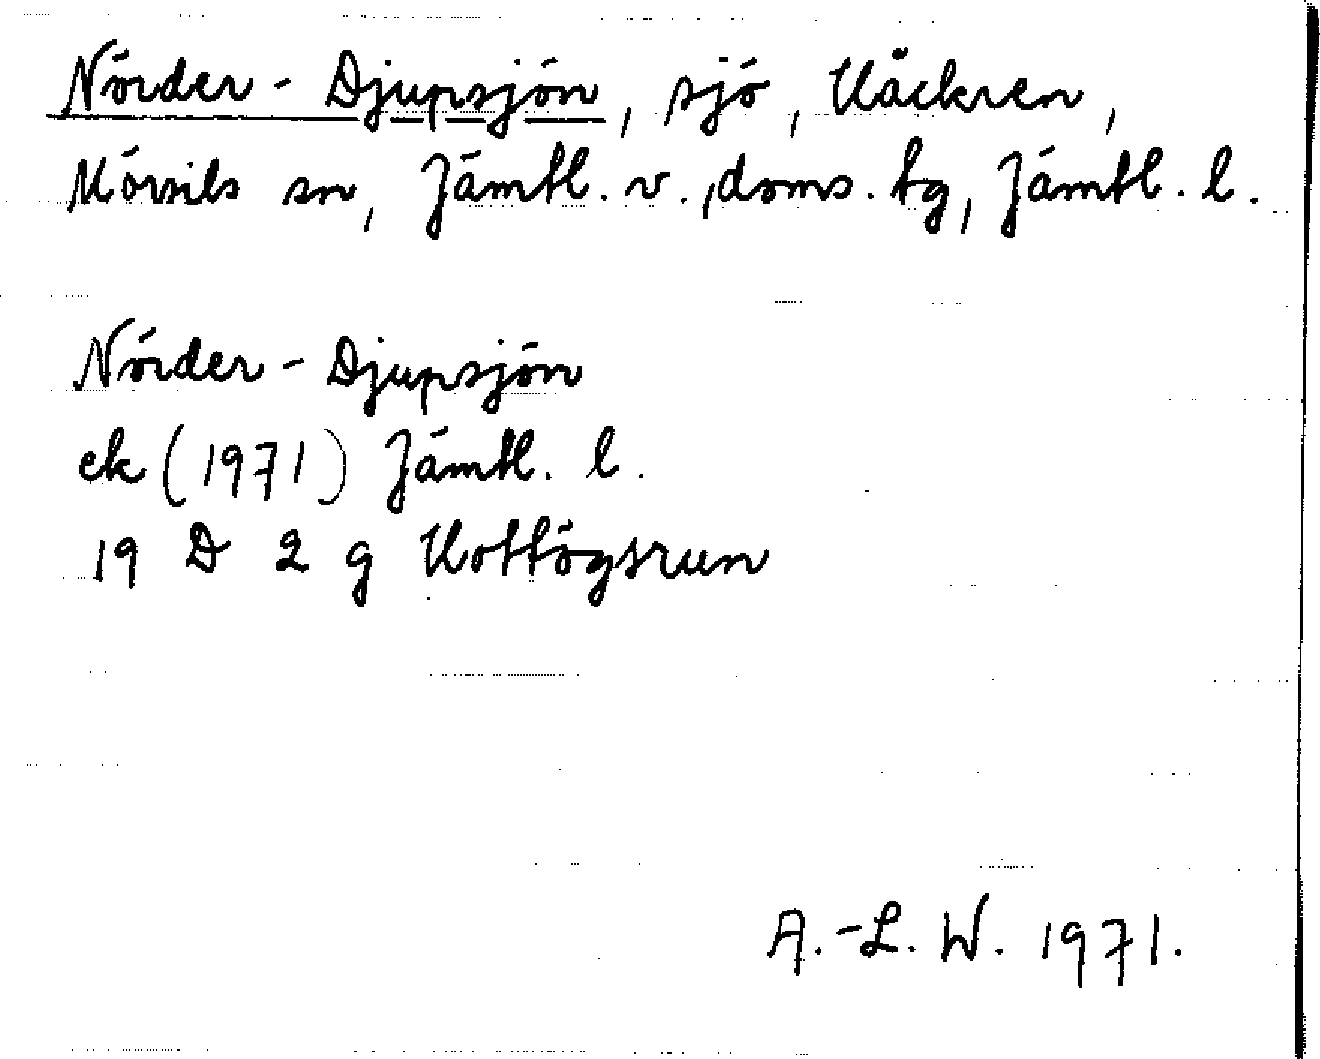 Nörder-Djupsjön, sjö, Kläckren,
Mörsils sn, Jämtl. v. doms. tg, Jämtl. l.
Nörder-Djupsjön
ek (1971) Jämtl. l.
19 D 2 g Hottögsrun
A.-L. W. 1971.